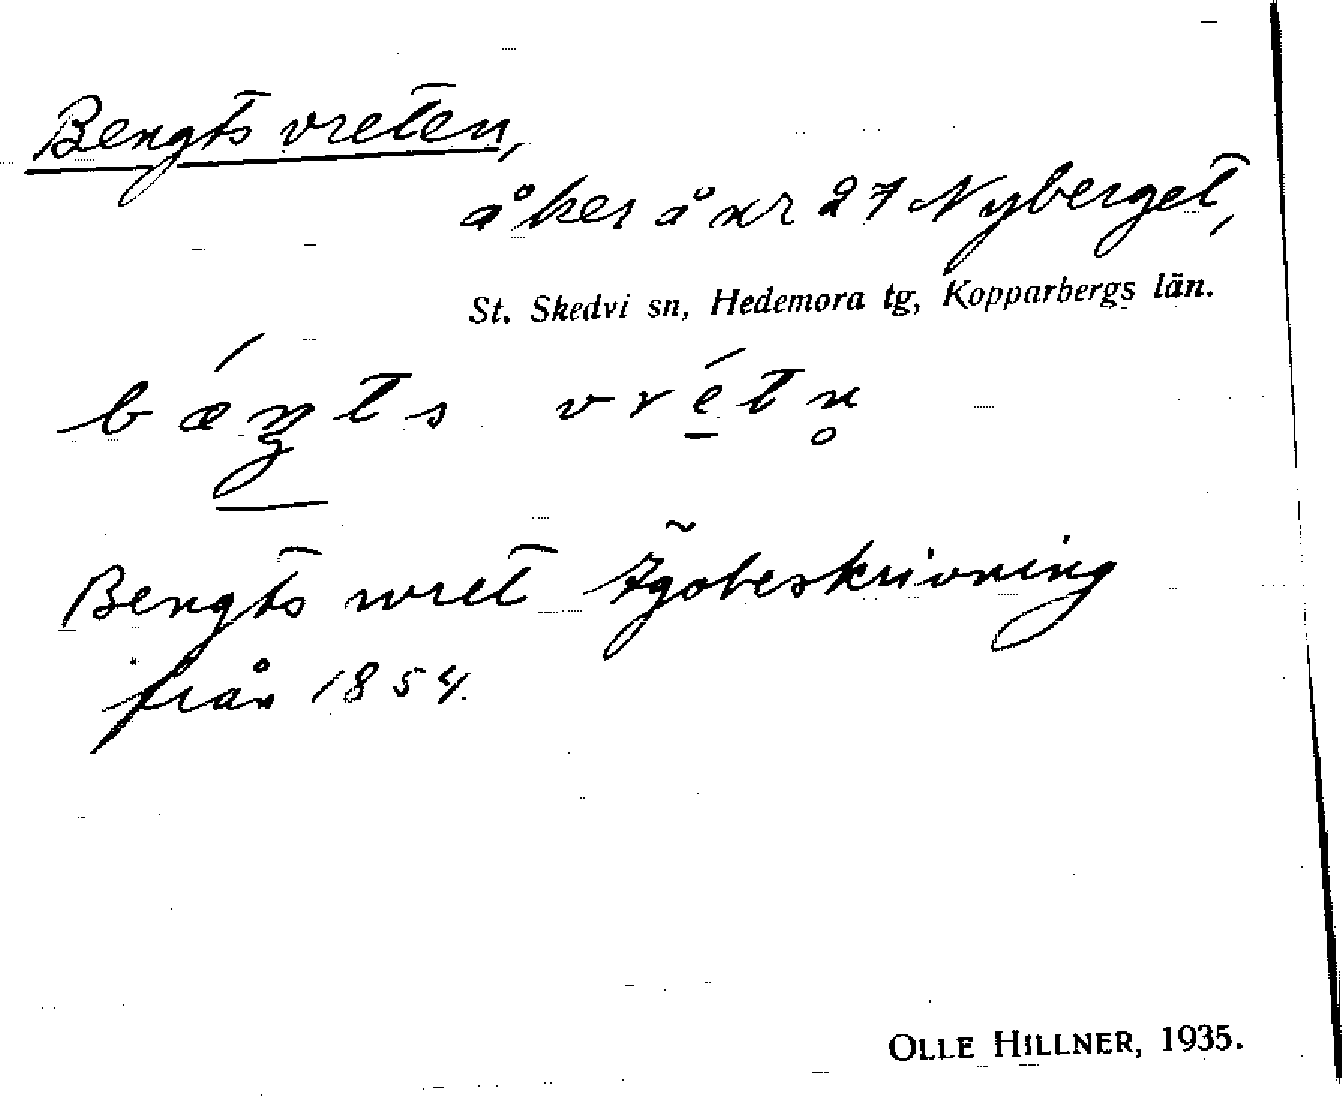 Bengts vreten,
åker å nr 27 Nyberget,
St. Skedvi sn, Hedemora tg, Kopparbergs län.
bæ´ŋts vré̠tn̥
Bengts wret Ägobeskrivning
från 1854.
OLLE HILLNER, 1935.